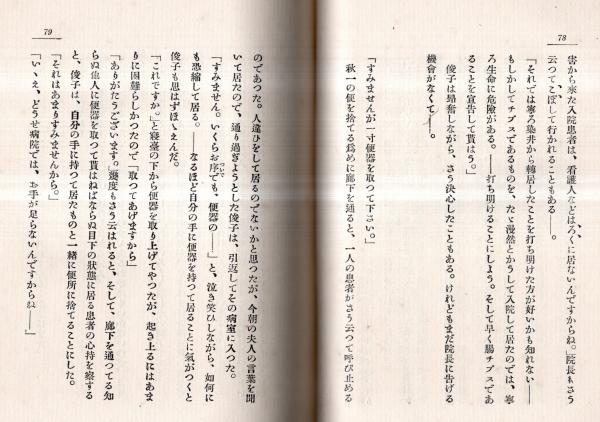 78
害から來た入院患者は、看護人などはろくに居ないんですからね。」院長もさう
云つてこぼして行かれることもある――。
「それでは寧ろ染井から轉居したことを打ち明けた方が好いかも知れない――
もしかしてチブスであるものを、たゞ漫然とかうして入院して居たのでは、寧
ろ生命に危險がある。――打ち明けることにしよう。そして早く腸チブスであ
ることを宣告して貰はう。」
俊子は昂奮しながら、さう決心したこともある。けれどもまだ院長に告げる
機會がなくて――。
「すみませんが一寸便器を取つて下さい。」
秋一の便を捨てる爲めに廊下を通ると、一人の患者がさう云つて呼び止める
79
のであつた。人違ひをして居るのでないかと思つたが、今朝の夫人の言葉を聞
いて居たので、通り過ぎようとした俊子は、引返してその病室に入つた。
「すみません。いくらお序でも、便器の――」と、泣き笑ひしながら、如何に
も恐縮して居る。――なるほど自分の手に便器を持つて居ることに氣がつくと
俊子も思はずほゝえんだ。
「これですか。」と寢臺の下から便器を取り上げてやつたが、起き上るにはあま
りに困難らしかつたので「取つてあげますから」
「ありがたうございます。」幾度もさう云はれると、そして、廊下を通つてる知
らぬ他人に便器を取つて貰はねばならぬ目下の狀態に居る患者の心持を察する
と、俊子は、自分の手に持つて居たものと一緒に便所に捨てることにした。
「それはあまりすみませんから。」
「いゝえ、どうせ病院では、お手が足らないんですからね――」